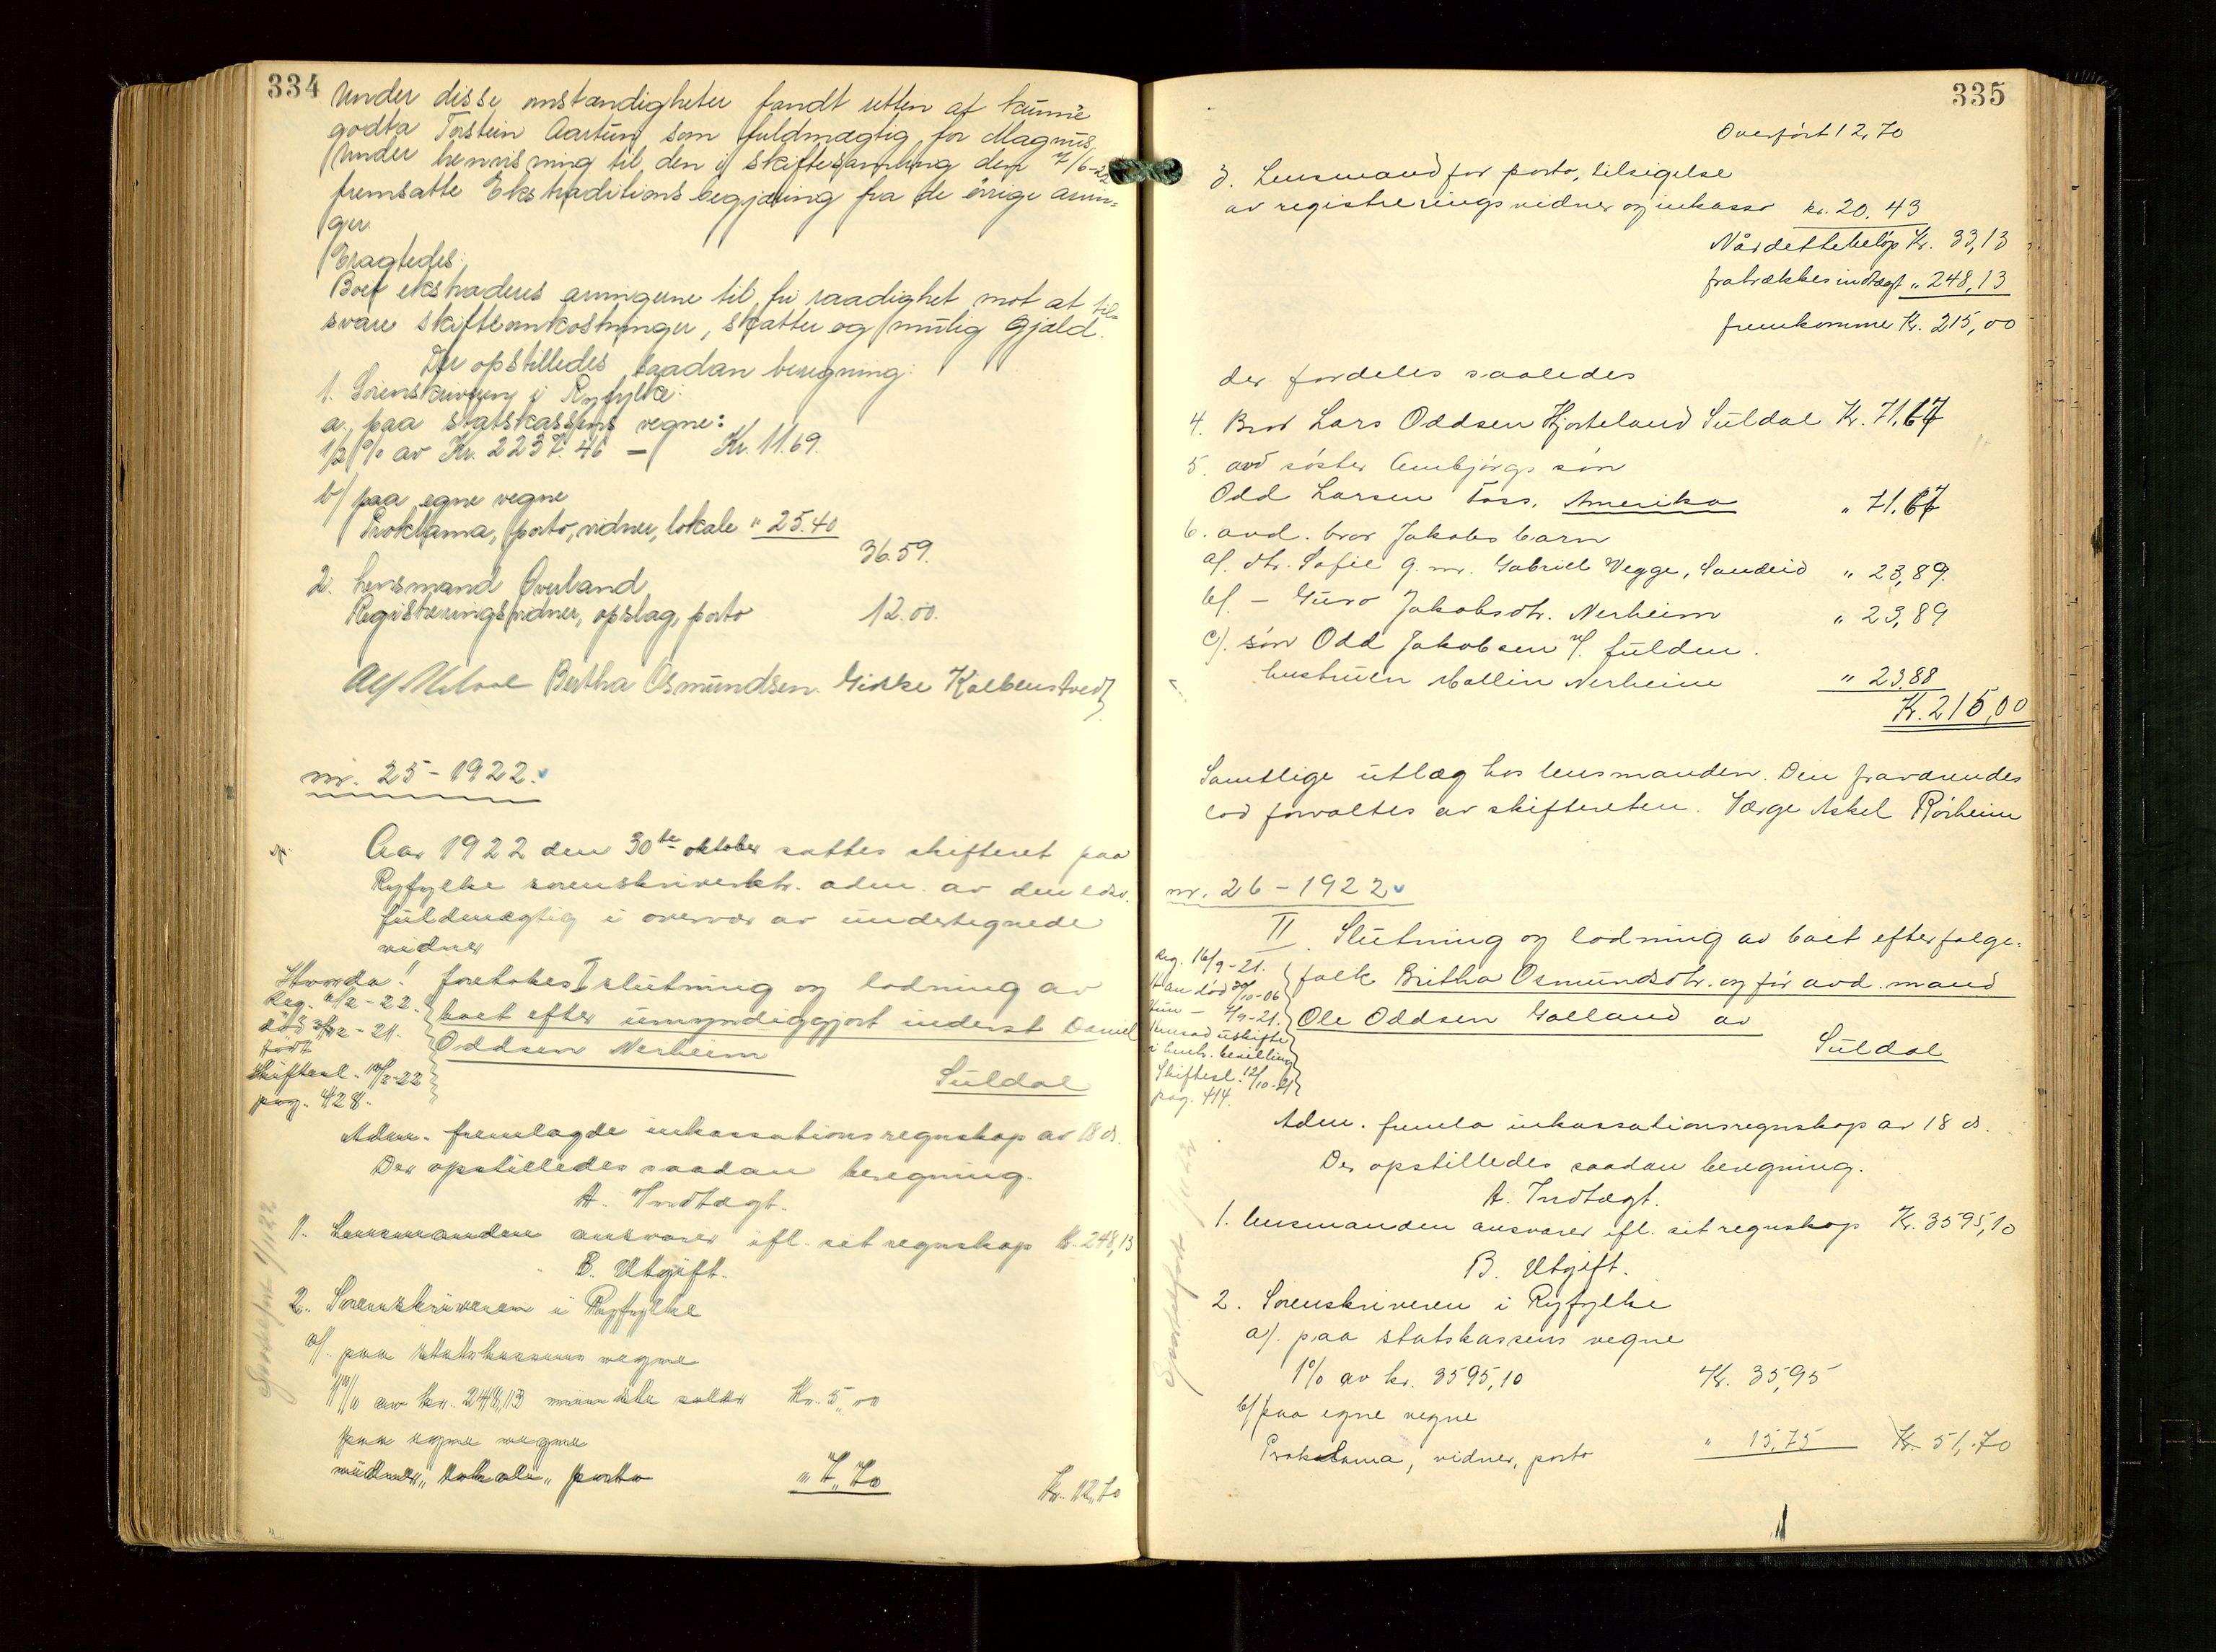 334
Under disse omstændigheter fandt retten at kunne
godta Torstein Aartun som fuldmægtig for Magnus.
Under henvisning til den i skiftesamling den 7/6-22
fremsatte Ekstraditions begjæring fra de örige arvin-
ger
Eragtedes:
Boet ekstraderes arvingerne til fri raadighet mot at til-
svare skifteomkostninger, skatter og mulig Gjæld.
Der opstilledes saadan beregning:
1. Sorenskriveren i Ryfylke:
a. paa statskassens vegne:
1/2 % av Kr. 2237.46 = Kr. 11.69.
b/ paa egne vegne
Proklama, porto, vidner, lokale " 25.40
36.59.
2. Lensmand Overland
Registreringsvidner, opslag, porto 12.00.
Bertha Osmundsen
nr. 25-1922.
Aar 1922 den 30te oktober sattes skifteret paa
Ryfylke sorenskriverktr. adm. av den edsv.
fuldmægtig i overvær av undertegnede
vidner
foretokes I slutning og lodning av
boet efter umyndiggjort inderst Daniel
Oddsen Nerheim
Suldal
död
født
Skiftesl.
pag. 428.
Adm. fremlagde inkassationsregnskap av 18 ds.
Der opstilledes saadan beregning.
A. Indtægt.
1. Lensmanden ansvarer ifl. sit regnskap Kr. 248,13
B. Utgift.
2. Sorenskriveren i Ryfylke
a/. paa statskassens vegne
1% av kr. 248,13 Kr. 5,00
paa egne vegne
vidner, lokale, porto " 7,70 Kr. 12,70
335
Overfört 12,70
3. Lensmand for porto, tilsigelse
av registreringsvidner og inkasso kr. 20,43
Når dette beløp Kr. 33,13
fratrækkes indtægt " 248,13
fremkommer Kr. 215,00
der fordeles saaledes
4. Bror Lars Oddsen Hjorteland Suldal Kr. 71,67
5. avd söster Ambjörgs sön
Odd Larsen Foss, Amerika " 71,67
6. avd. bror Jakobs barn
a/. dtr. Sofie g. m. Gabriel Vegge, Sandeid " 23,89.
b/. - Guro Jakobsdtr. Nerheim " 23,89
c/. sön Odd Jakobsen v/. fuldm.
hustruen Mallin Nerheim " 23,88
Kr. 215,00
Samtlige utlæg hos lensmanden. Den fraværendes
lod forvaltes av skifteretten. Værge Askel Rörheim
nr. 26-1922
II. Slutning og lodning av boet efter folge-
folk Britha Osmundsdtr. og för avd. mand
Ole Oddsen Galland av
Suldal
Reg. 16/9-21.
Han död 30/10-06
Hun - 4/9-21.
hensad uskifte
i henh. bevilling
Skiftesl. 12/10-21
pag. 414.
Adm. fremla inkassationsregnskap av 18 ds.
Der opstilledes saadan beregning.
A. Indtægt.
1. Lensmanden ansvarer ifl. sit regnskap Kr. 3595,10
B. Utgift.
2. Sorenskriveren i Ryfylke
a/. paa statskassens vegne
1% av kr. 3595,10 Kr. 35,95
b/ paa egne vegne
Proklama, vidner, porto " 15,75 Kr. 51,70